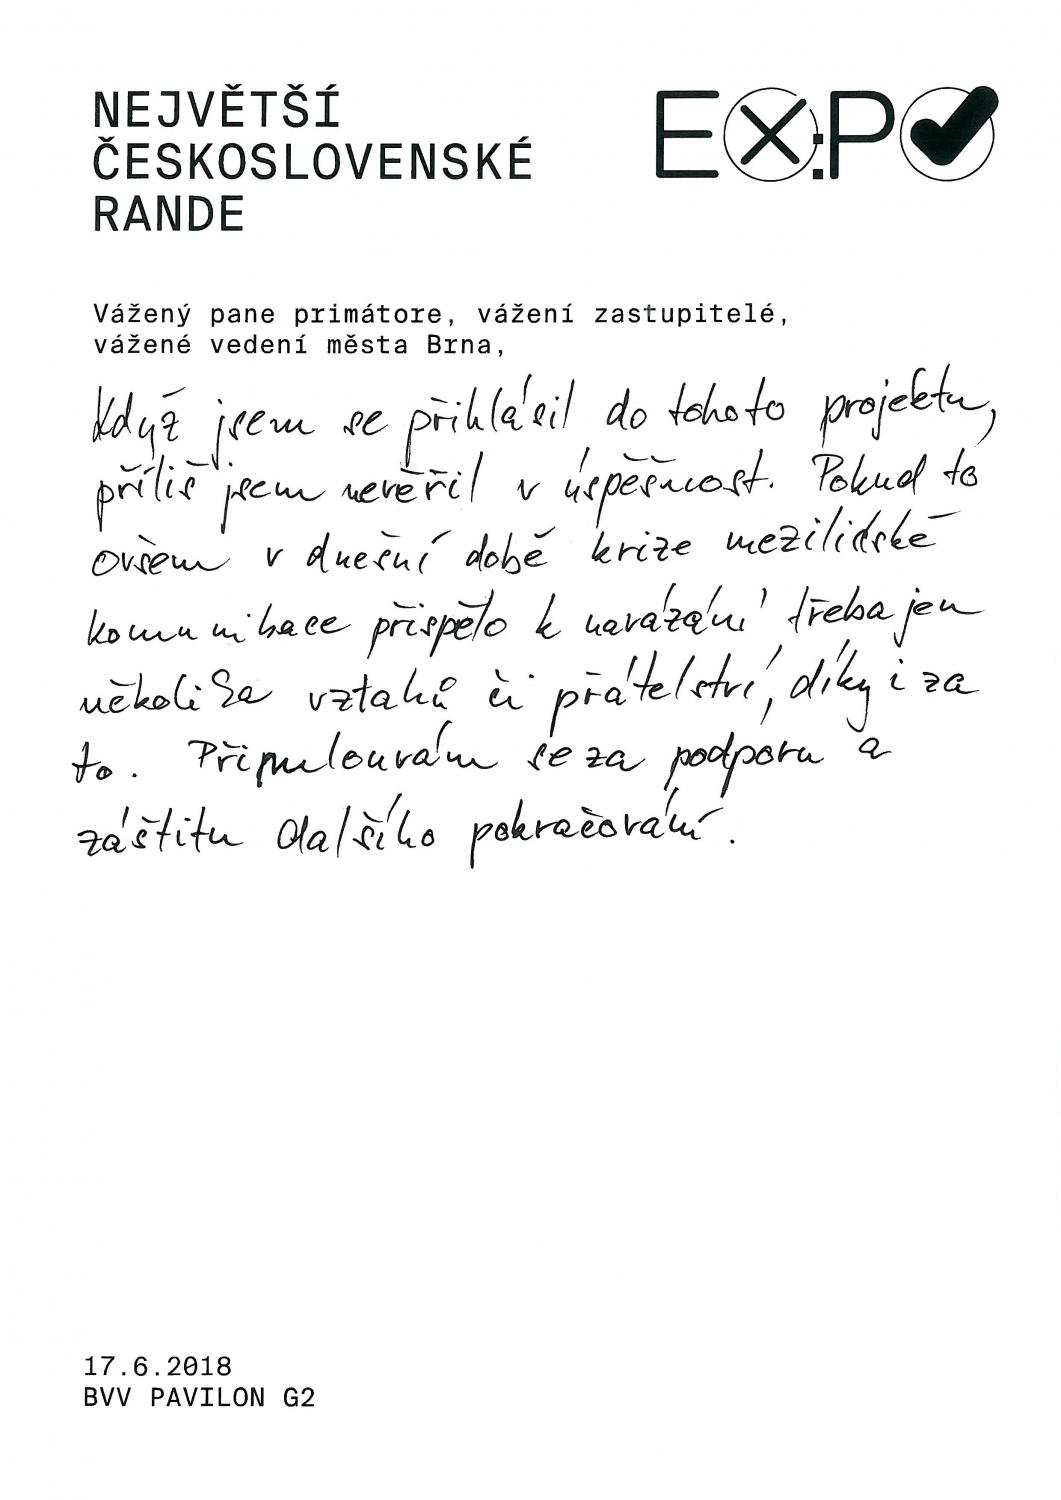 NEJVĚTŠÍ
ČESKOSLOVENSKÉ
RANDE
EX:PO
Vážený pane primátore, vážení zastupitelé,
vážené vedení města Brna,
Když jsem se přihlásil do tohoto projektu,
příliš jsem nevěřil v úspěšnost. Pokud to
ovšem v dnešní době krize mezilidské
komunikace přispělo k navázání třeba jen
několika vztahů či přátelství, díky i za
to. Přimlouvám se za podporu a
záštitu dalšího pokračování.
17.6.2018
BVV PAVILON G2